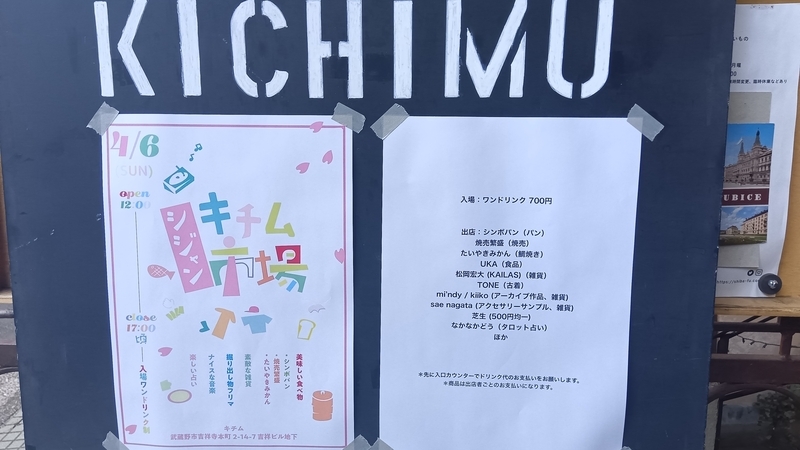 KICHIMU
4/6
(SUN)
open
12:00
シジャン
キチム
市場
close
17:00
頃
入場ワンドリンク制
美味しい食べ物
・シンボパン
・焼売繁盛
・たいやきみかん
素敵な雑貨
掘り出し物フリマ
ナイスな音楽
楽しい占い
キチム
武蔵野市吉祥寺本町 2-14-7 吉祥ビル地下
入場：ワンドリンク 700円
出店：シンボパン（パン）
焼売繁盛（焼売）
たいやきみかん（鯛焼き）
UKA（食品）
松岡宏大 (KAILAS)（雑貨）
TONE（古着）
mi'ndy / kiiko (アーカイブ作品、雑貨)
sae nagata (アクセサリーサンプル、雑貨)
芝生 (500円均一)
なかなかどう（タロット占い）
ほか
＊先に入口カウンターでドリンク代のお支払いをお願いします。
＊商品は出店者ごとのお支払いになります。
UBICE